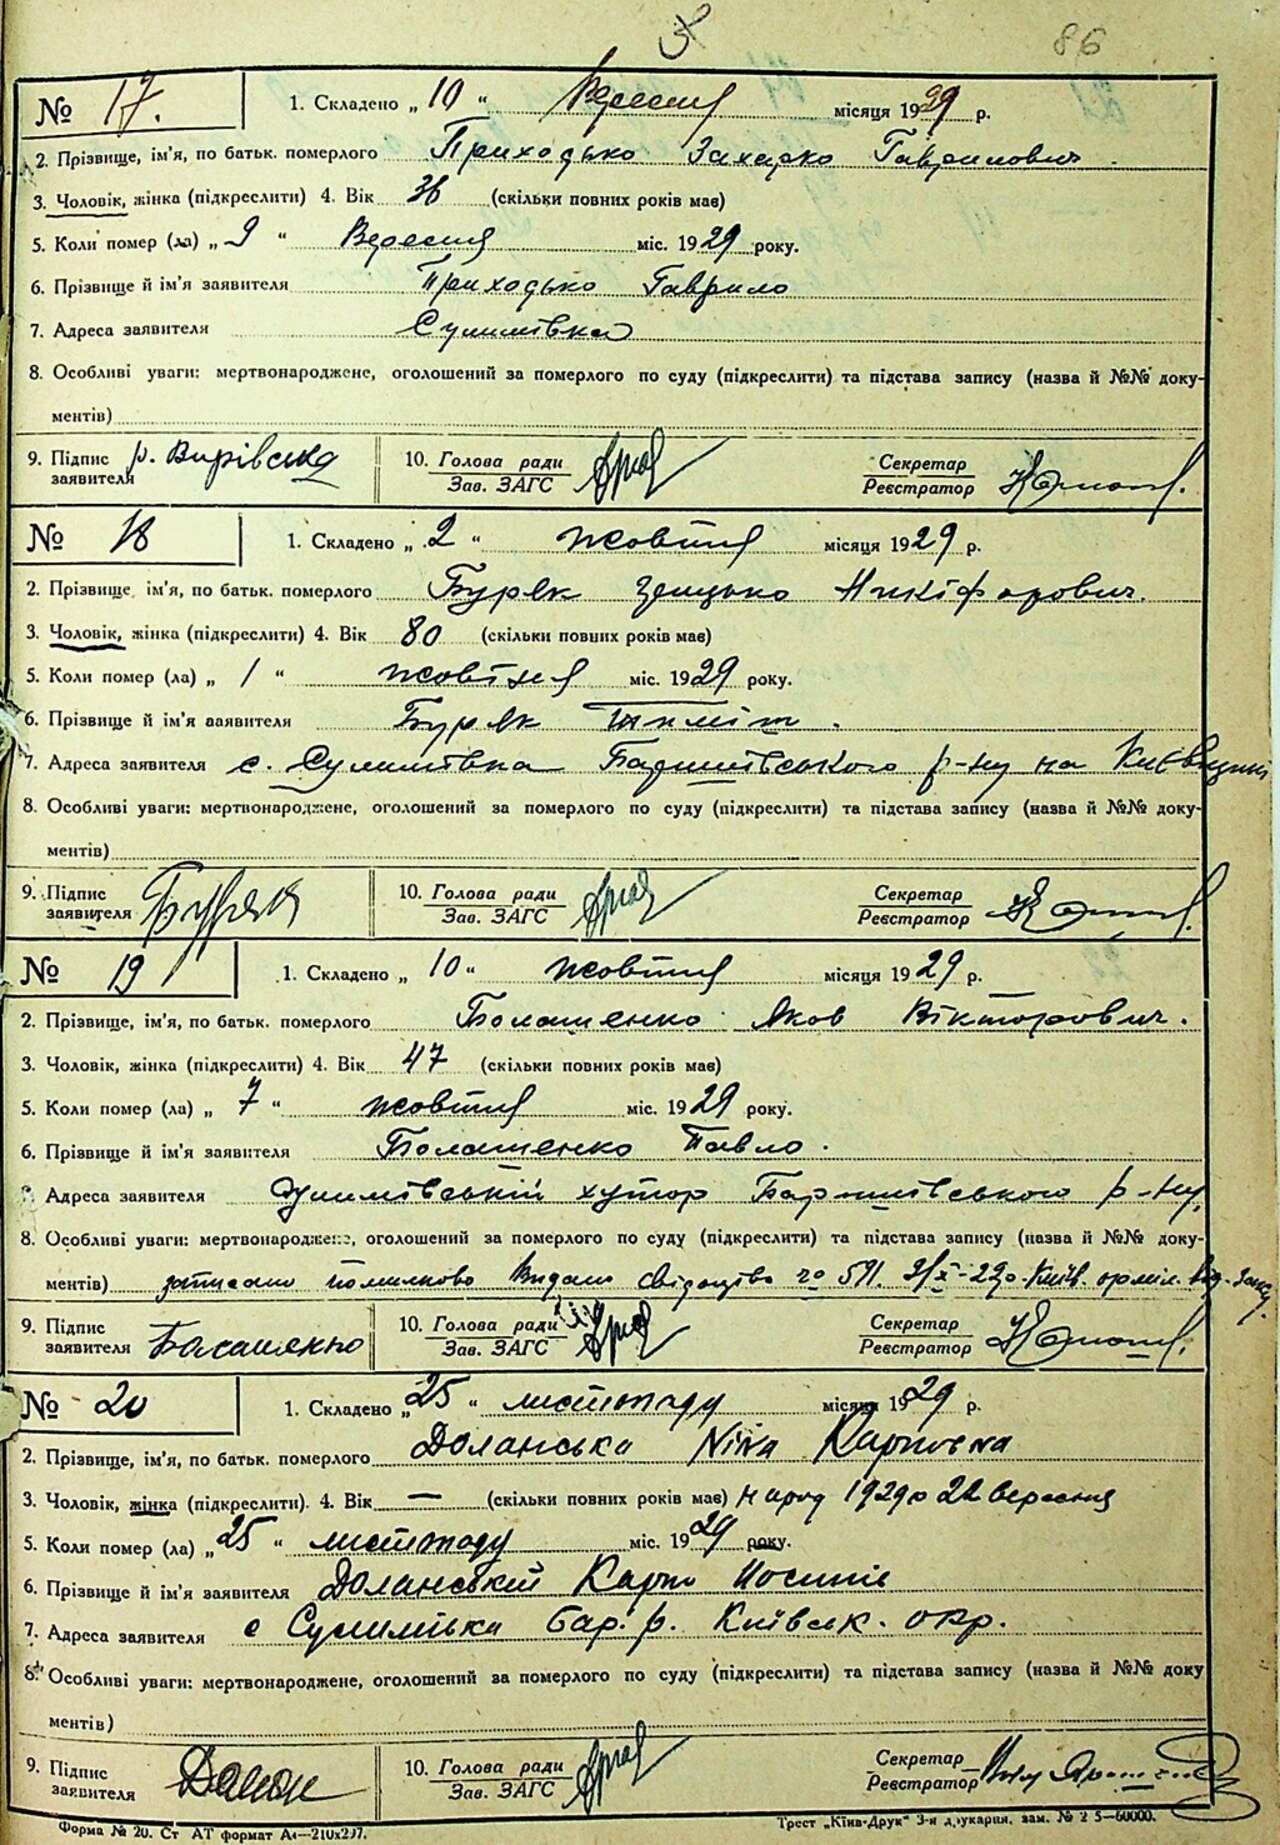 86
№ 17. 1. Складено „ 10 “ Вересня місяця 1929 р.
2. Прізвище, ім'я, по батьк. померлого Приходько Захарко Гаврилович.
3. Чоловік, жінка (підкреслити) 4. Вік 36 (скільки повних років має)
5. Коли помер (ла) „ 9 “ Вересня міс. 1929 року.
6. Прізвище й ім'я заявителя Приходько Гаврило
7. Адреса заявителя Сулимівка
8. Особливі уваги: мертвонароджене, оголошений за померлого по суду (підкреслити) та підстава запису (назва й №№ доку-
ментів)
9. Підпис заявителя 10. Голова ради Зав. ЗАГС Секретар Реєстратор
№ 18 1. Складено „ 2 “ жовтня місяця 1929 р.
2. Прізвище, ім'я, по батьк. померлого Буряк Никіфорович.
3. Чоловік, жінка (підкреслити) 4. Вік 80 (скільки повних років має)
5. Коли помер (ла) „ 1 “ жовтня міс. 1929 року.
6. Прізвище й ім'я заявителя Буряк
7. Адреса заявителя с. Сулимівка Баришівського р-ну на Київщині
8. Особливі уваги: мертвонароджене, оголошений за померлого по суду (підкреслити) та підстава запису (назва й №№ доку-
ментів)
9. Підпис заявителя Буряк 10. Голова ради Зав. ЗАГС Секретар Реєстратор
№ 19 1. Складено „ 10 “ жовтня місяця 1929 р.
2. Прізвище, ім'я, по батьк. померлого Болашенко Яков Вікторович.
3. Чоловік, жінка (підкреслити) 4. Вік 47 (скільки повних років має)
5. Коли помер (ла) „ 7 “ жовтня міс. 1929 року.
6. Прізвище й ім'я заявителя Болашенко Павло.
7. Адреса заявителя Сулимівський хутор Баришівського р-ну,
8. Особливі уваги: мертвонароджене, оголошений за померлого по суду (підкреслити) та підстава запису (назва й №№ доку-
ментів) записано помилково Видано свідоцтво 591. Київ.
9. Підпис заявителя Балашенко 10. Голова ради Зав. ЗАГС Секретар Реєстратор
№ 20 1. Складено „ 25 “ листопаду місяця 1929 р.
2. Прізвище, ім'я, по батьк. померлого Доланська Ніна Карповна
3. Чоловік, жінка (підкреслити). 4. Вік — (скільки повних років має) народ 1929 р 22 вересня
5. Коли помер (ла) „ 25 “ листопаду міс. 1929 року.
6. Прізвище й ім'я заявителя Доланський Карпо Йосипів
7. Адреса заявителя с Сулимівка Бар. р. Київськ. окр.
8. Особливі уваги: мертвонароджене, оголошений за померлого по суду (підкреслити) та підстава запису (назва й №№ доку
ментів)
9. Підпис заявителя 10. Голова ради Зав. ЗАГС Секретар Реєстратор
Форма № 20. Ст АТ формат А4—210х297. Трест „Київ-Друк“ 3-я друкарня, зам. № 2 5—60000.